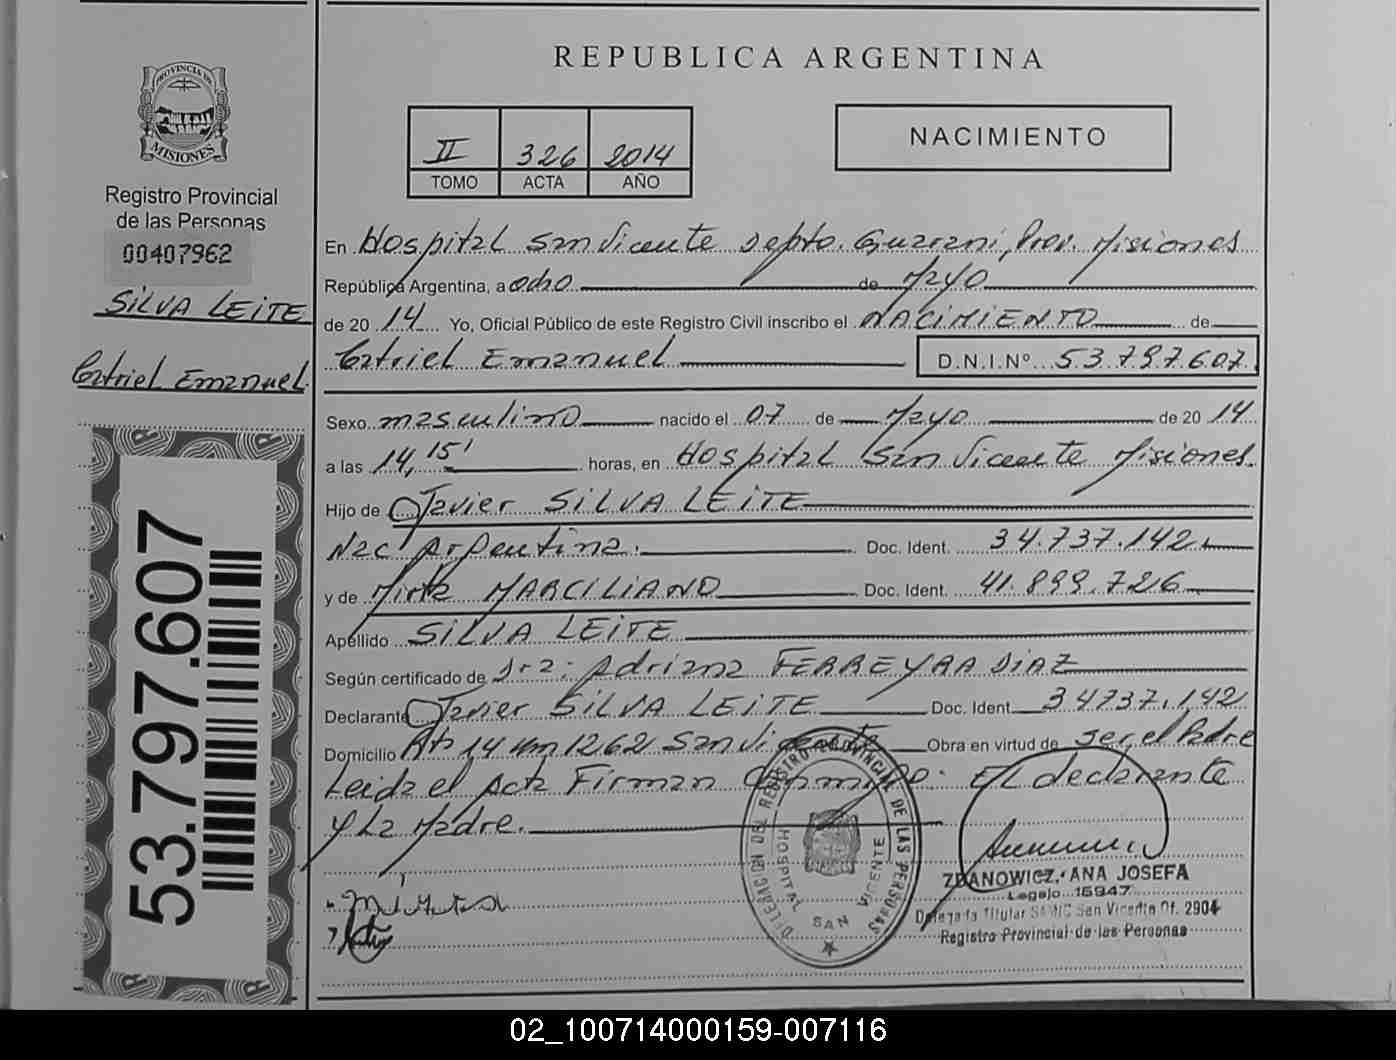 REPUBLICA ARGENTINA
PROVINCIA DE
MISIONES
Registro Provincial
de las Personas
00407962
SILVA LEITE
Catriel Emanuel
53.797.607
II 326 2014
TOMO ACTA AÑO
NACIMIENTO
En Hospital San Vicente Depto. Guaraní, Prov. Misiones
República Argentina, a ocho de Mayo
de 2014 Yo, Oficial Público de este Registro Civil inscribo el NACIMIENTO de
Catriel Emanuel D.N.I.Nº 53.797.607
Sexo masculino nacido el 07 de Mayo de 2014
a las 14,15' horas, en Hospital San Vicente Misiones
Hijo de Javier SILVA LEITE
Nac. Argentina. Doc. Ident. 34.737.142
y de Mirta MARCILIANO Doc. Ident. 41.899.726
Apellido SILVA LEITE
Según certificado de Dra. Adriana FERREYRA DIAZ
Declarante Javier SILVA LEITE Doc. Ident. 34737.142
Domicilio Rta 14 km 1262 San Vicente Obra en virtud de ser el Padre
Leida el Acta Firman Conmigo: El declarante
y La Madre.
DELEGACION DEL REGISTRO PROVINCIAL DE LAS PERSONAS
HOSPITAL SAN VICENTE
ZDANOWICZ, ANA JOSEFA
Legajo 16947
Delegada Titular SAMIC San Vicente Of. 2904
Registro Provincial de las Personas
02_100714000159-007116